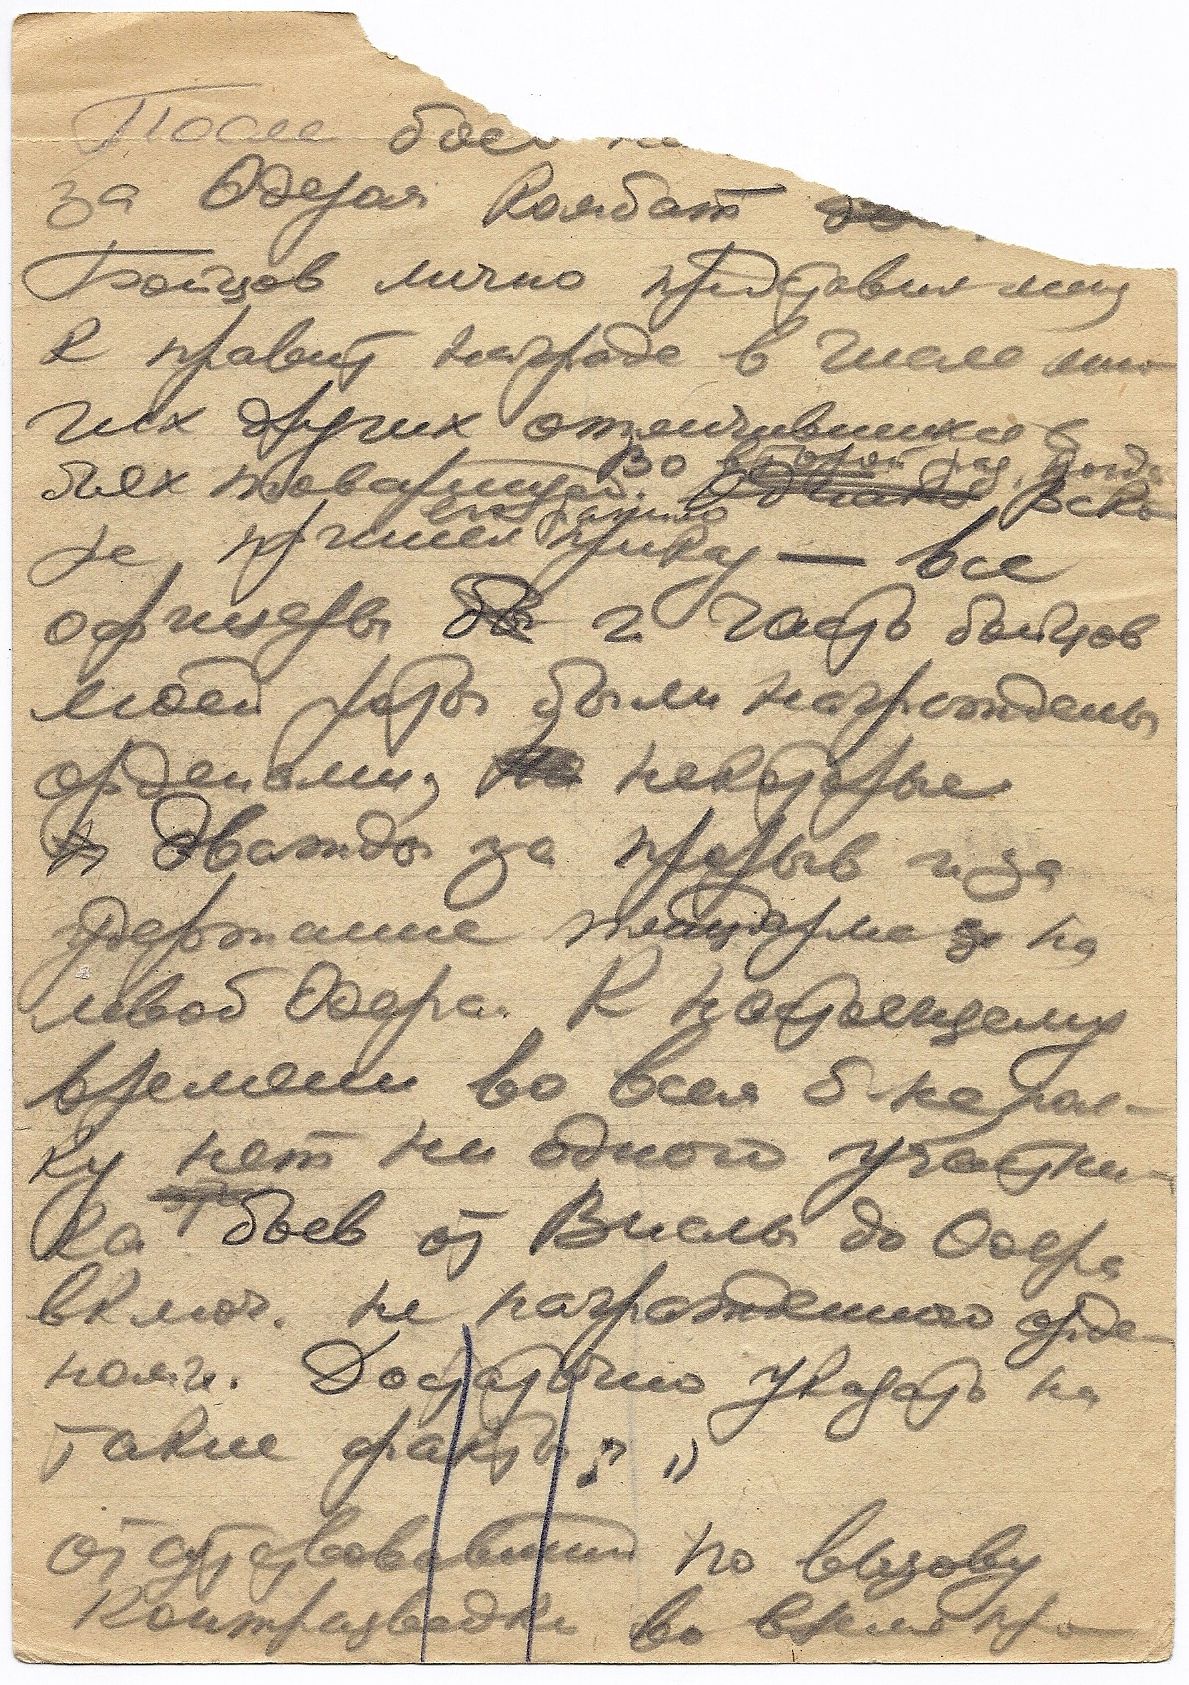 После боев на
за Одером Комбат
Бойцов лично представил меня
к правит награде в числе мно
гих других отличившихся в
боях товарищей. Во второй раз. Когда Вско
ре пришел приказ — все
офицеры и часть бойцов
моей роты были награждены
орденами, некоторые
дважды за прорыв и за
удержание плацдарма на
левоб Одера. К настоящему
времени во всем б-не, пол-
ку нет ни одного участни-
ка боев от Вислы до Одера
включ. не награжденного орде-
нами. Достаточно указать на
такие факты: "
отсутствовавший по вызову
Контрразведки во время про